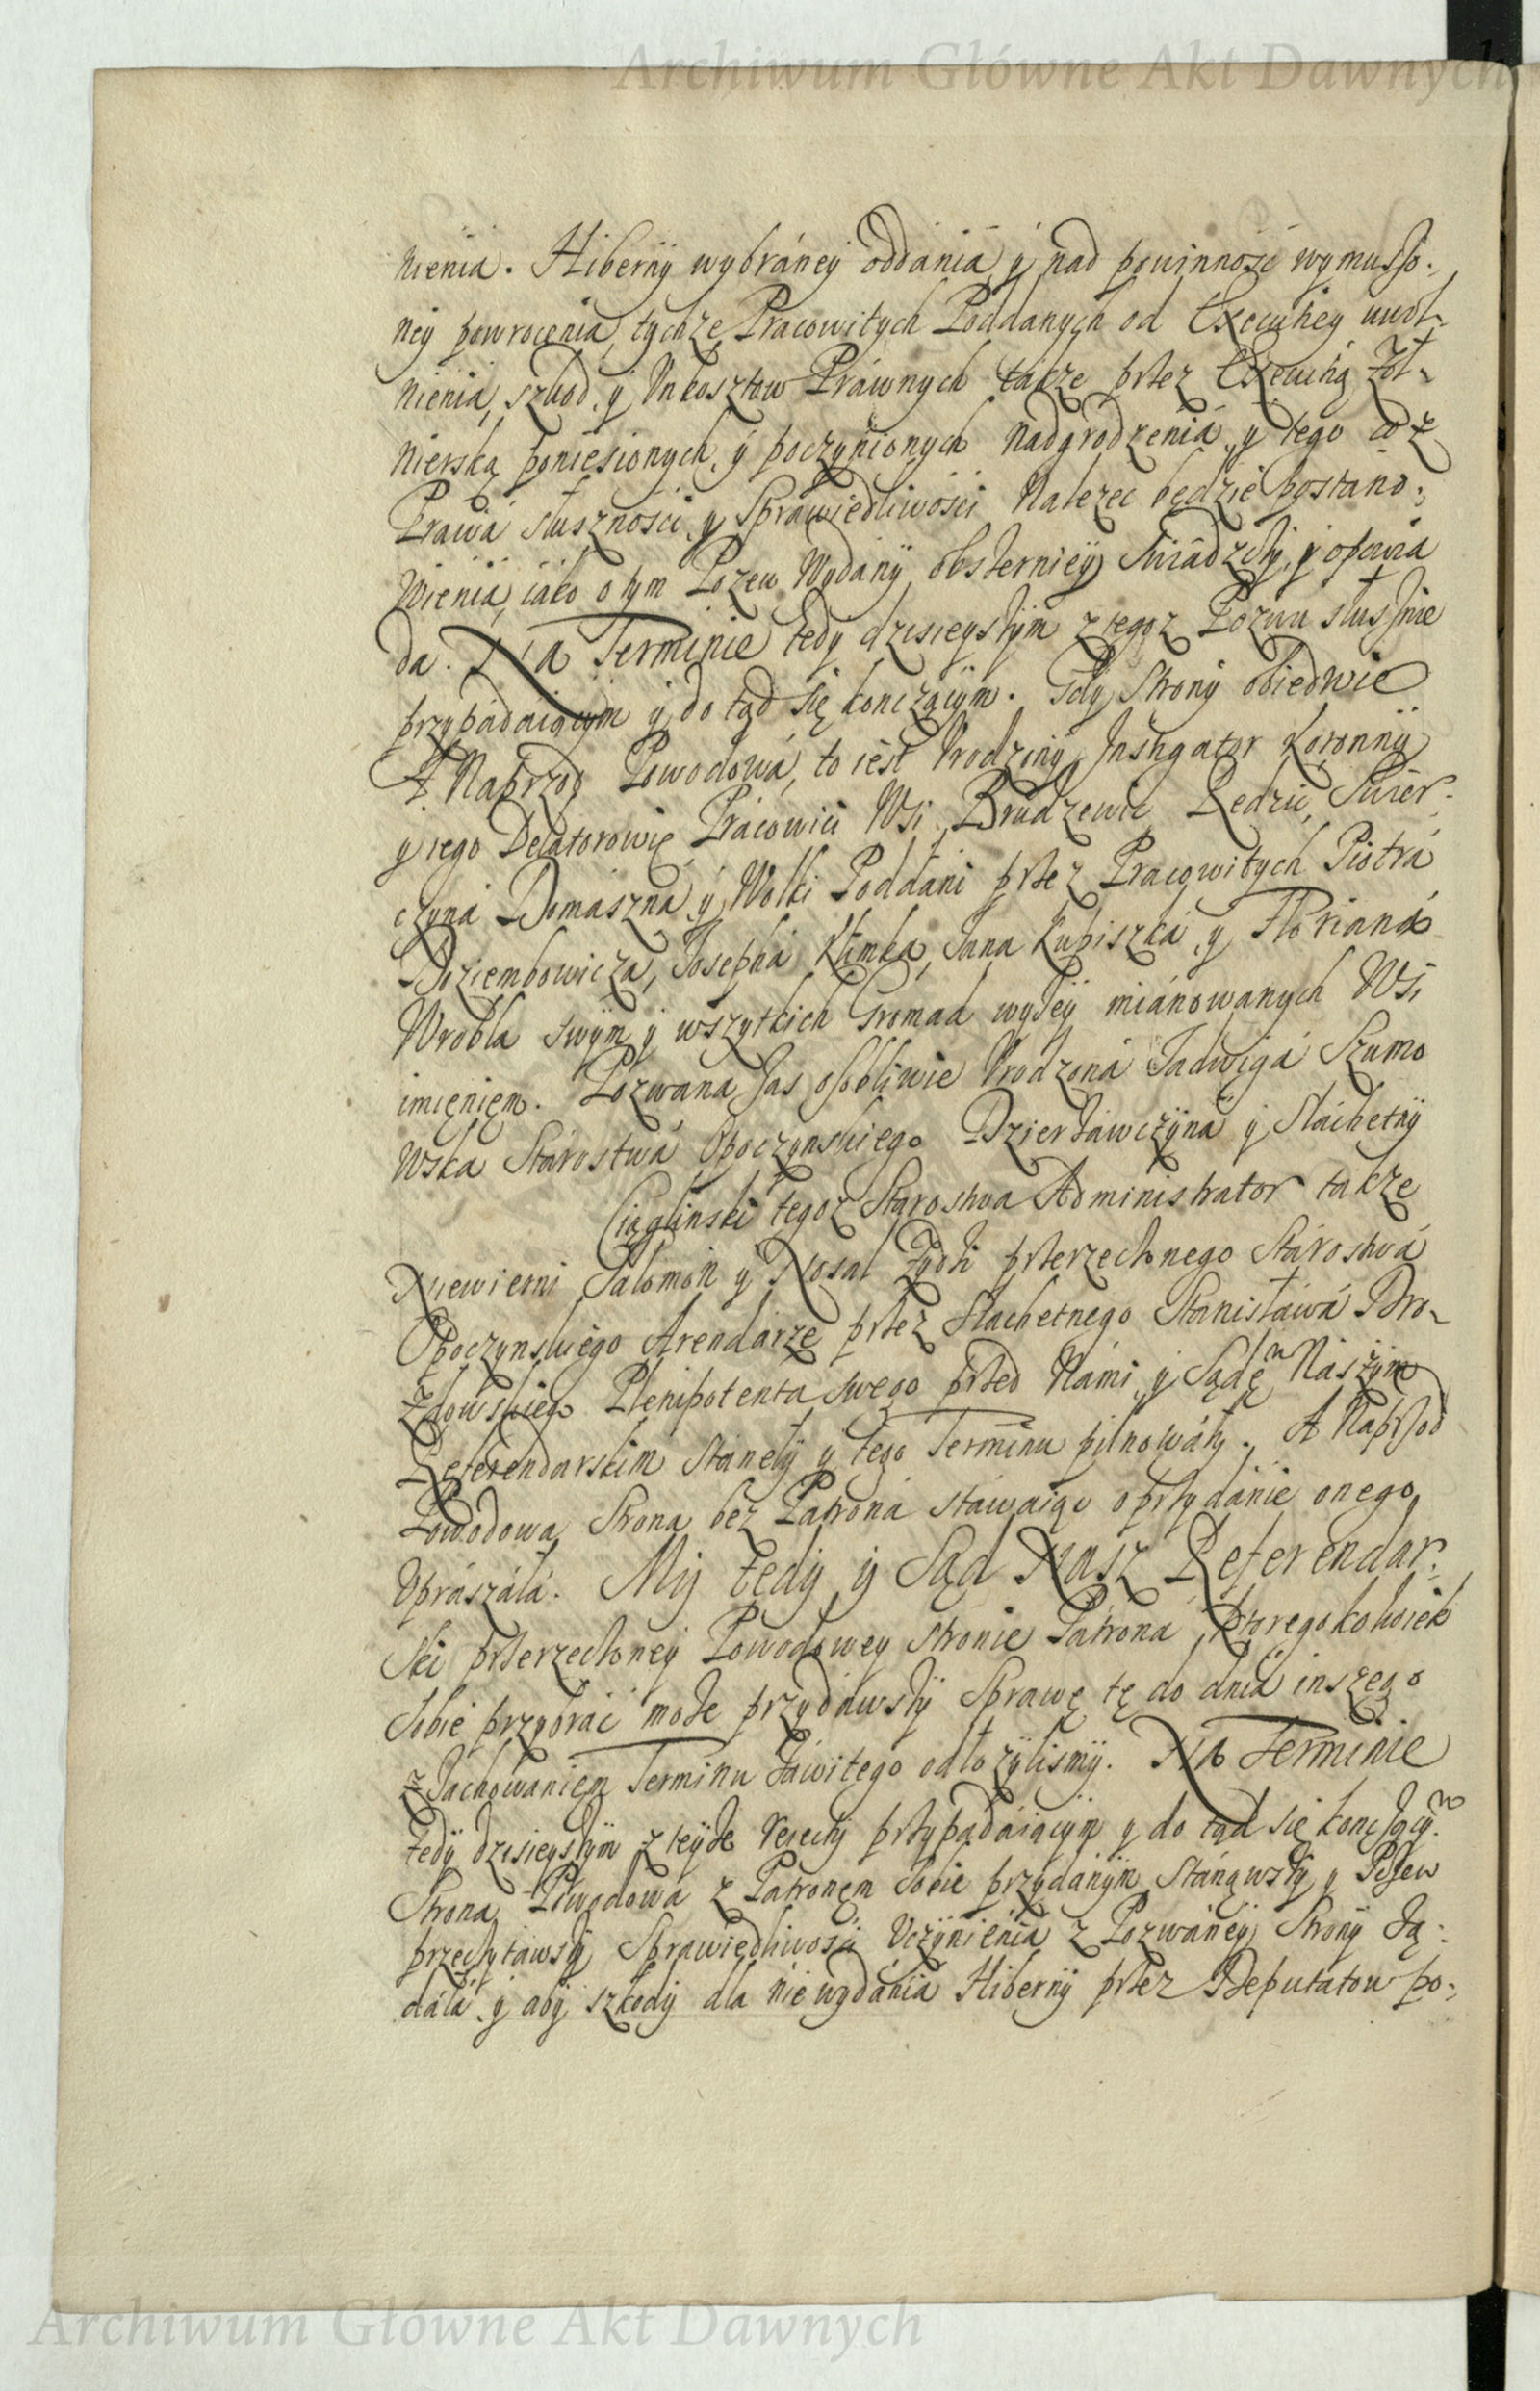 Archiwum Główne Akt Dawnych
nienia. Hiberny wybráney oddánia y nad powinność wymuszo:
ney powrocenia, tychże Pracowitych Poddanych od Exekucyey uwol-
nienia, szkod, y Unkosztow Práwnych także przez Exekucyą Żoł-
nierską poniesionych, y poczynionych nadgrodzenia, y tego co z
Prawá słusznosci y Spráwiedliwości należec będzie postano:
wienia, iáko o tym Pozew wydány obszerniey świádczy, y opowia
da. Na Terminie tedy dzisieyszym z tegoż Pozwu słusznie
przypádaiącym y do tąd się kończącym. Gdy Strony obiedwie
A Naprzod Powodowá, to iest Urodzony Instigator Koronny
y iego Delatorowie Prácowici Wsi Brudzewic Kędzic, Świer-
czyná Domaszná y Wolki Poddáni przez Pracowitych Piotrá
Dziembowicza, Josephá Klimka, Jana Kupiszká, y Floriana
Wrobla swym y wszytkich Gromad wyżey miánowanych Wsi
imieniem. Pozwana zas osobliwie Urodzoná Jadwigá Szumo
wska Stárostwá Opoczynskiego Dzierżawczyna y Slachetny
Ciąglinski tegoż Starostwa Administrator także
Niewierni Salomon y Nosal Żydzi przerzeczonego Stárostwá
Opoczynskiego Arendarze przez Slachetnego Stanisłáwá Bro-
złowskiego Plenipotenta swego przed Námi y Sądęm Nászym
Referendarskim stánęły y tego Terminu pilnowáły. A Naprzod
Powodowa Strona bez Patroná stáwaiąc o przydánie onego
Upraszálá. My tedy y Sąd Nasz Referendar:
ski przerzeczoney Powodowey stronie Patrona, ktoregokolwiek
sobie przybrać może przydawszy Sprawę tę do dnia inszego
z zachowaniem Terminu záwitego odłożylismy. Na Terminie
tedy dzisieyszym z teyże Reiecty przypádáiącym y do tąd się konczący.m
Strona Powodowá z Patronem sobie przydánym Stánąwszy y Pozew
przeczytawszy Sprawiedliwosci Uczynienia z Pozwáney Strony żą:
dáłá, y aby szkody dla nie wydánia Hiberny przez Deputatow po:
Archiwum Główne Akt Dawnych